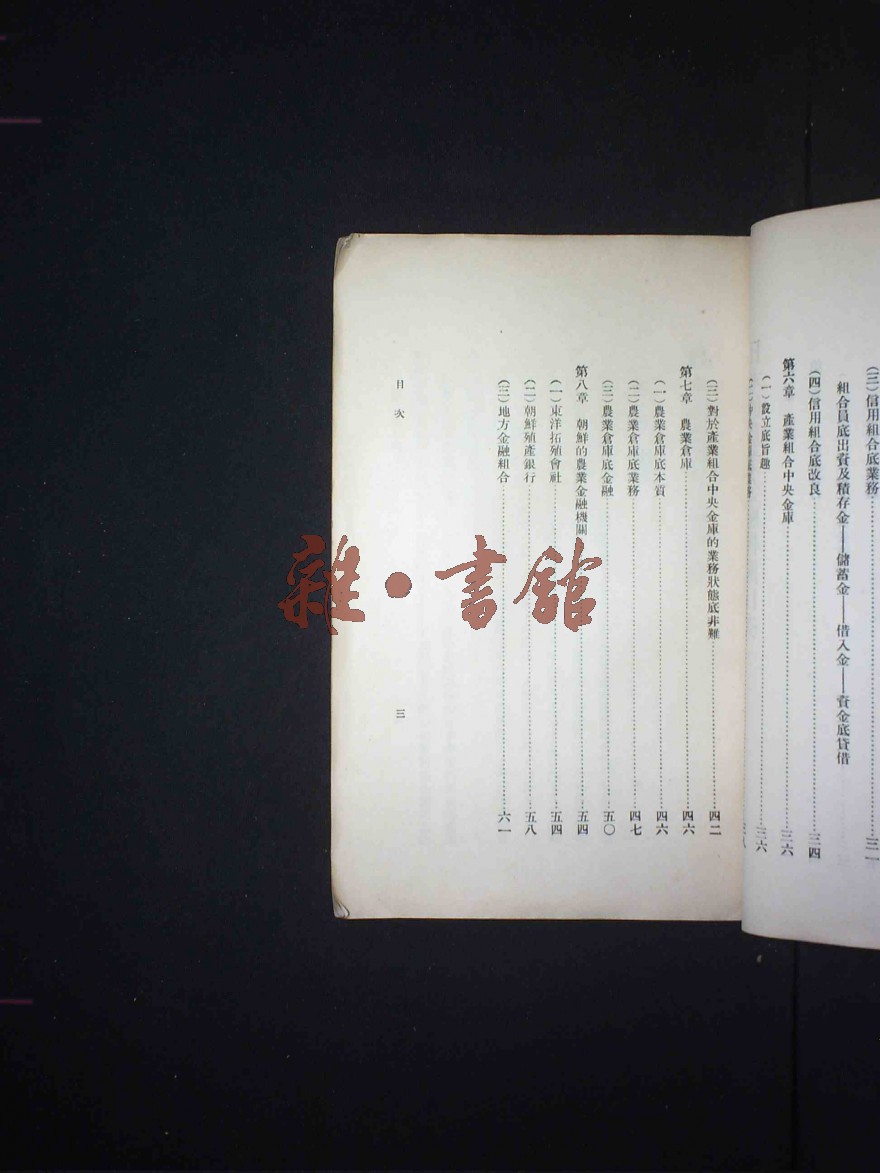 (三)信用組合底業務……三一
組合員底出資及積存金——儲蓄金——借入金——資金底貸借
(四)信用組合底改良……三四
第六章 產業組合中央金庫……三六
(一)設立底旨趣……三六
(三)對於產業組合中央金庫的業務狀態底非難……四二
第七章 農業倉庫……四六
(一)農業倉庫底本質……四六
(二)農業倉庫底業務……四七
(三)農業倉庫底金融……五〇
第八章 朝鮮的農業金融機關……五四
(一)東洋拓殖會社……五四
(二)朝鮮殖產銀行……五八
(三)地方金融組合……六一
目次
三
雜·書館